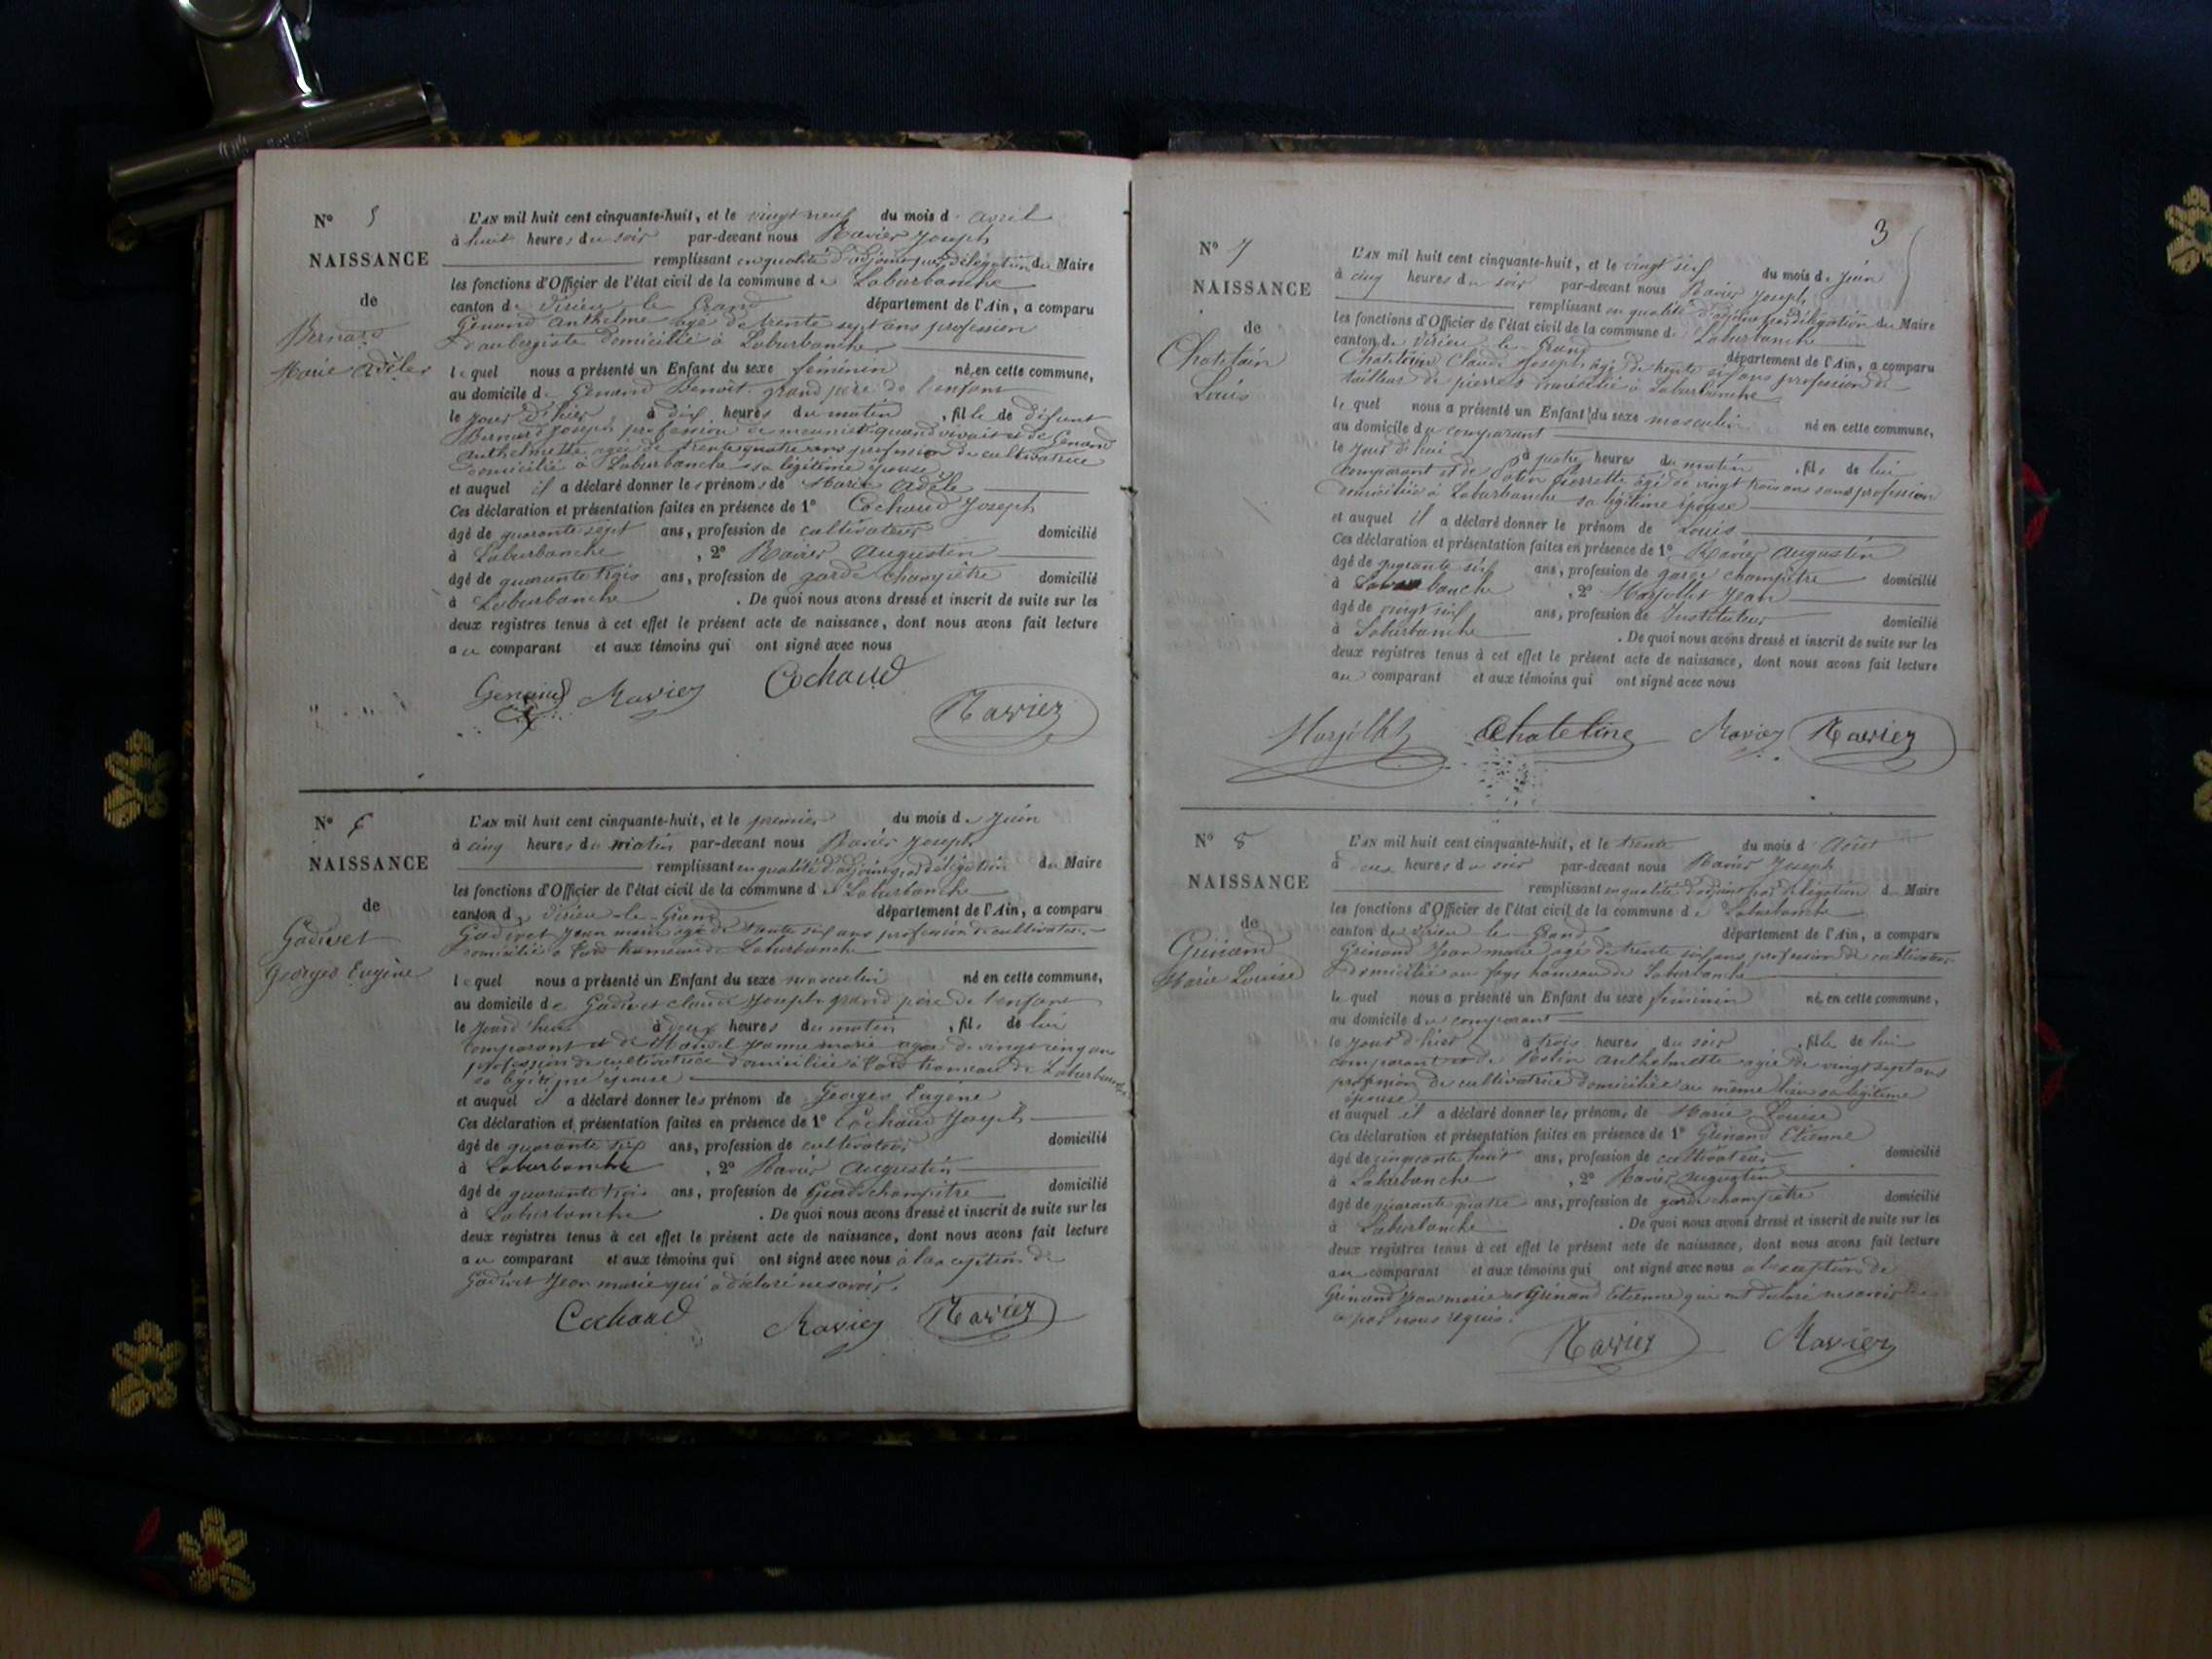 N° 5
NAISSANCE
de
Bernard
Marie Adèle
L'AN mil huit cent cinquante-huit, et le vingt neuf du mois d'avril
à huit heures du soir par-devant nous Ravier Joseph
remplissant en qualité d'adjoint par délégation du Maire
les fonctions d'Officier de l'état civil de la commune de Laburbanche
canton de Virieu le Grand département de l'Ain, a comparu
Genand Anthelme âgé de trente sept ans profession
d'aubergiste domicilié à Laburbanche
lequel nous a présenté un Enfant du sexe féminin né en cette commune,
au domicile de Genand Benoît grand père de l'enfant
le jour d'hier à dix heures du matin, fille de défunt
Bernard Joseph profession de meunier quand vivait et de Genand
Anthelmette agée de trente quatre ans profession de cultivatrice
domicilié à Laburbanche sa légitime épouse
et auquel il a déclaré donner les prénoms de Marie Adèle
Ces déclaration et présentation faites en présence de 1° Cochaud Joseph
âgé de quarante sept ans, profession de cultivateur domicilié
à Laburbanche, 2° Ravier Augustin
âgé de quarante trois ans, profession de garde champêtre domicilié
à Laburbanche. De quoi nous avons dressé et inscrit de suite sur les
deux registres tenus à cet effet le présent acte de naissance, dont nous avons fait lecture
au comparant et aux témoins qui ont signé avec nous
Genand Ravier Cochaud
Ravier
N° 6
NAISSANCE
de
Gadivet
Georges Eugène
L'AN mil huit cent cinquante-huit, et le premier du mois de Juin
à cinq heures du matin par-devant nous Ravier Joseph
remplissant en qualité d'adjoint par délégation du Maire
les fonctions d'Officier de l'état civil de la commune de Laburbanche
canton de Virieu-le-Grand département de l'Ain, a comparu
Gadivet Jean marie agé de trente six ans profession de cultivateur
domicilié à hameau de Laburbanche
lequel nous a présenté un Enfant du sexe masculin né en cette commune,
au domicile de Gadivet Claude Joseph grand père de l'enfant
le jourd'hui à deux heures du matin, fils de lui
comparant et de Jeanne marie agée de vingt cinq ans
profession de cultivatrice domiciliée à hameau de Laburbanche
sa légitime épouse
et auquel il a déclaré donner les prénom de Georges Eugène
Ces déclaration et présentation faites en présence de 1° Cochaud Joseph
âgé de quarante six ans, profession de cultivateur domicilié
à Laburbanche, 2° Ravier Augustin
âgé de quarante trois ans, profession de Garde champêtre domicilié
à Laburbanche. De quoi nous avons dressé et inscrit de suite sur les
deux registres tenus à cet effet le présent acte de naissance, dont nous avons fait lecture
au comparant et aux témoins qui ont signé avec nous à l'exception de
Gadivet Jean marie qui a déclaré ne savoir.
Cochaud Ravier Ravier
3
N° 7
NAISSANCE
de
Chatelain
Louis
L'AN mil huit cent cinquante-huit, et le vingt six du mois de Juin
à cinq heures du soir par-devant nous Ravier Joseph
remplissant en qualité d'adjoint par délégation du Maire
les fonctions d'Officier de l'état civil de la commune de Laburbanche
canton de Virieu le Grand département de l'Ain, a comparu
Chatelain Claude Joseph âgé de trente six ans profession de
tailleur de pierres domicilié à Laburbanche
lequel nous a présenté un Enfant du sexe masculin né en cette commune,
au domicile du comparant
le jour d'hui à quatre heures du matin, fils de lui
comparant et de Pierrette âgé de vingt trois ans sans profession
domiciliée à Laburbanche sa légitime épouse
et auquel il a déclaré donner le prénom de Louis
Ces déclaration et présentation faites en présence de 1° Ravier Augustin
âgé de quarante six ans, profession de garde champêtre domicilié
à Laburbanche, 2° Marjollet Jean
âgé de vingt six ans, profession de Instituteur domicilié
à Laburbanche. De quoi nous avons dressé et inscrit de suite sur les
deux registres tenus à cet effet le présent acte de naissance, dont nous avons fait lecture
au comparant et aux témoins qui ont signé avec nous
Marjollet Chateline Ravier Ravier
N° 8
NAISSANCE
de
Grinand
Marie Louise
L'AN mil huit cent cinquante-huit, et le trente du mois d'Août
à heures du soir par-devant nous Ravier Joseph
remplissant en qualité d'adjoint par délégation du Maire
les fonctions d'Officier de l'état civil de la commune de Laburbanche
canton de Virieu le Grand département de l'Ain, a comparu
Grinand Jean marie agé de trente six ans profession de cultivateur
domicilié au hameau de Laburbanche
lequel nous a présenté un Enfant du sexe féminin né en cette commune,
au domicile du comparant
le jour d'hier à trois heures du soir, fille de lui
comparant et de Anthelmette agée de vingt sept ans
profession de cultivatrice domiciliée au même lieu sa légitime
épouse
et auquel il a déclaré donner les prénoms de Marie Louise
Ces déclaration et présentation faites en présence de 1° Grinand Etienne
âgé de cinquante huit ans, profession de cultivateur domicilié
à Laburbanche, 2° Ravier Augustin
âgé de quarante quatre ans, profession de garde champêtre domicilié
à Laburbanche. De quoi nous avons dressé et inscrit de suite sur les
deux registres tenus à cet effet le présent acte de naissance, dont nous avons fait lecture
au comparant et aux témoins qui ont signé avec nous à l'exception de
Grinand Jean marie et Grinand Etienne qui ont déclaré ne savoir
par nous requis.
Ravier Ravier